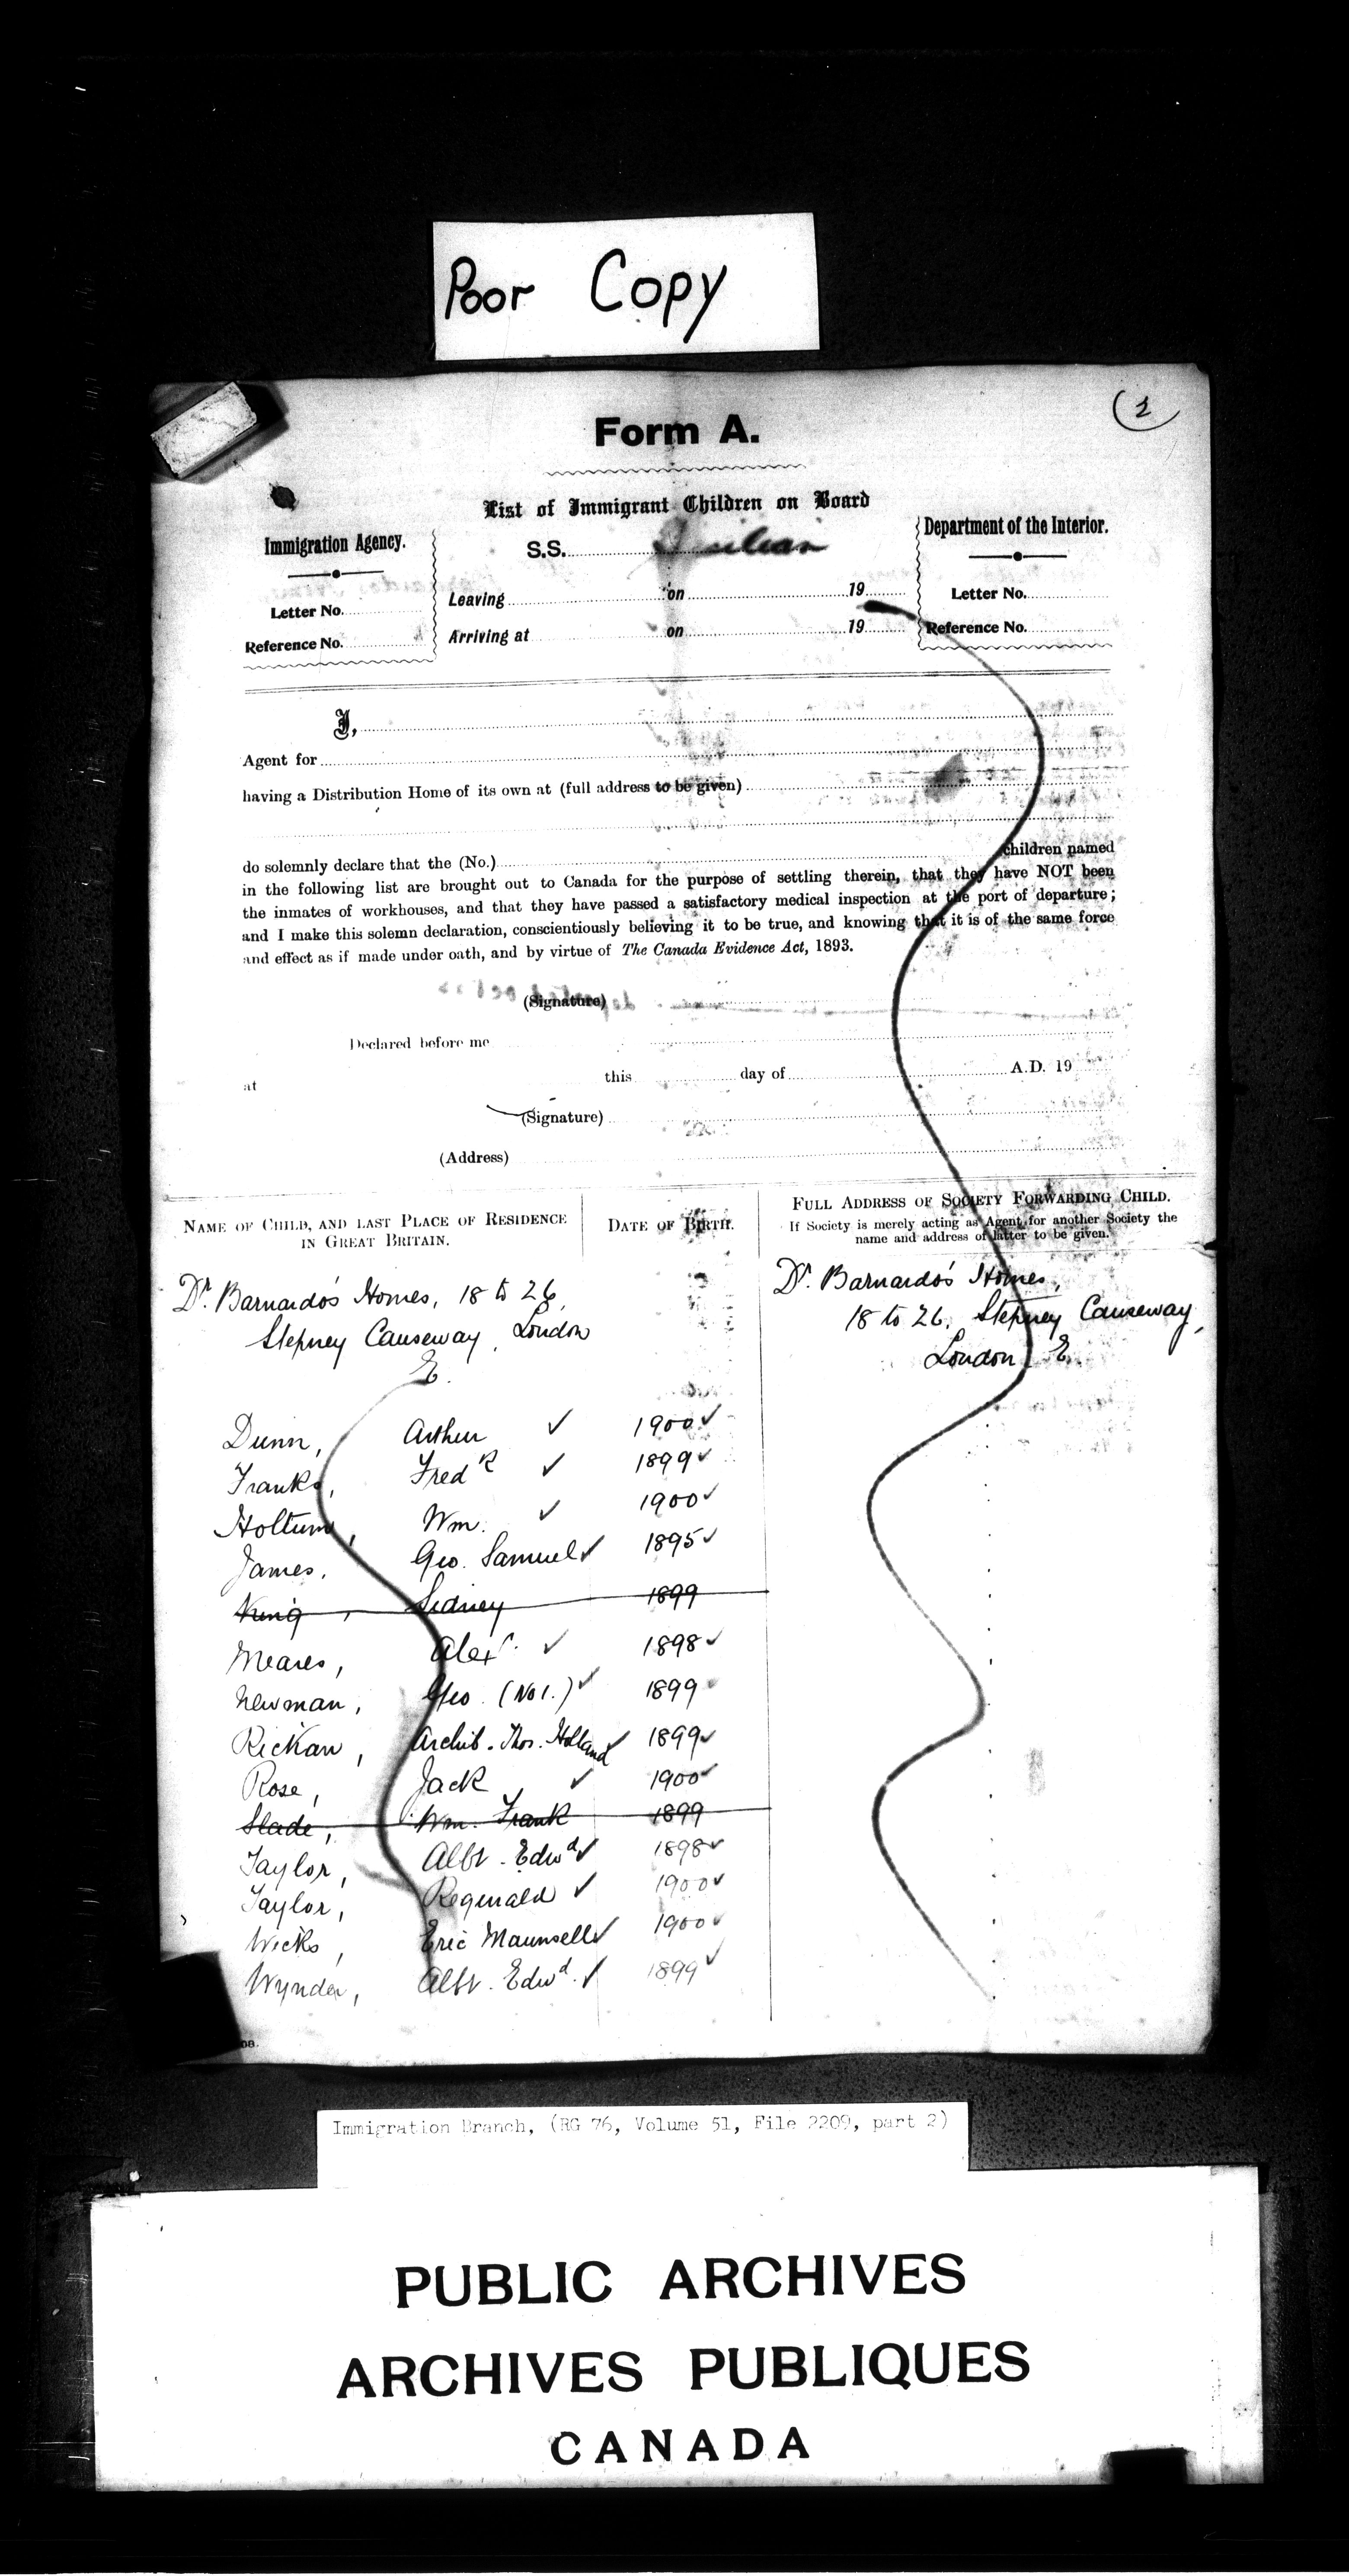 Poor Copy
2
Form A.
List of Immigrant Children on Board
Immigration Agency.
Department of the Interior.
S.S. Sicilian
Letter No.
Leaving on 19
Letter No.
Reference No.
Arriving at on 19
Reference No.
I,
Agent for
having a Distribution Home of its own at (full address to be given)
do solemnly declare that the (No.) children named
in the following list are brought out to Canada for the purpose of settling therein, that they have NOT been
the inmates of workhouses, and that they have passed a satisfactory medical inspection at the port of departure;
and I make this solemn declaration, conscientiously believing it to be true, and knowing that it is of the same force
and effect as if made under oath, and by virtue of The Canada Evidence Act, 1893.
(Signature)
Declared before me
at this day of A.D. 19
(Signature)
(Address)
NAME OF CHILD, AND LAST PLACE OF RESIDENCE
IN GREAT BRITAIN.
DATE OF BIRTH.
FULL ADDRESS OF SOCIETY FORWARDING CHILD.
If Society is merely acting as Agent for another Society the
name and address of latter to be given.
Dr. Barnardo's Homes, 18 to 26,
Stepney Causeway, London
E.
Dr. Barnardo's Homes,
18 to 26, Stepney Causeway,
London, E.
Dunn, Arthur ✓ 1900 ✓
Franks, Fredk ✓ 1899 ✓
Holtum, Wm. ✓ 1900 ✓
James, Geo. Samuel ✓ 1895 ✓
King, Sidney 1899
Meares, Alexr. ✓ 1898 ✓
Newman, Geo. (No 1.) ✓ 1899 ✓
Rickaw, Archib. Thos. Holland ✓ 1899 ✓
Rose, Jack ✓ 1900 ✓
Slade, Wm. Frank 1899
Taylor, Albt. Edwd ✓ 1898 ✓
Taylor, Reginald ✓ 1900 ✓
Wicks, Eric Maunsell ✓ 1900 ✓
Wynder, Albt. Edwd. ✓ 1899 ✓
08.
Immigration Branch, (RG 76, Volume 51, File 2209, part 2)
PUBLIC ARCHIVES
ARCHIVES PUBLIQUES
CANADA